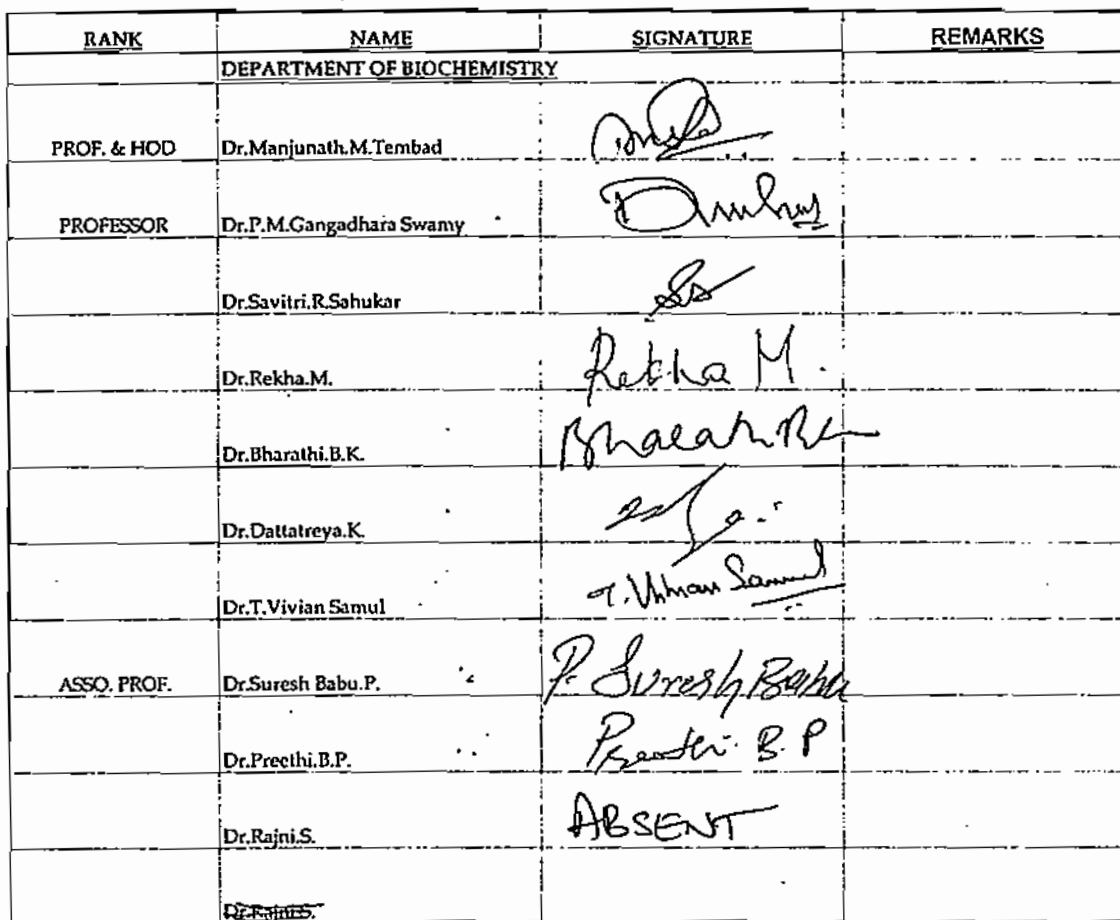 RANK NAME SIGNATURE REMARKS
DEPARTMENT OF BIOCHEMISTRY
PROF. & HOD Dr.Manjunath.M.Tembad
PROFESSOR Dr.P.M.Gangadhara Swamy
Dr.Savitri.R.Sahukar
Dr.Rekha.M. Rekha M.
Dr.Bharathi.B.K.
Dr.Dattatreya.K.
Dr.T.Vivian Samul T. Vivian Samuel
ASSO. PROF. Dr.Suresh Babu.P. P. Suresh Babu
Dr.Preethi.B.P. Preethi. B. P
Dr.Rajni.S. ABSENT
Dr.Rajni.S.